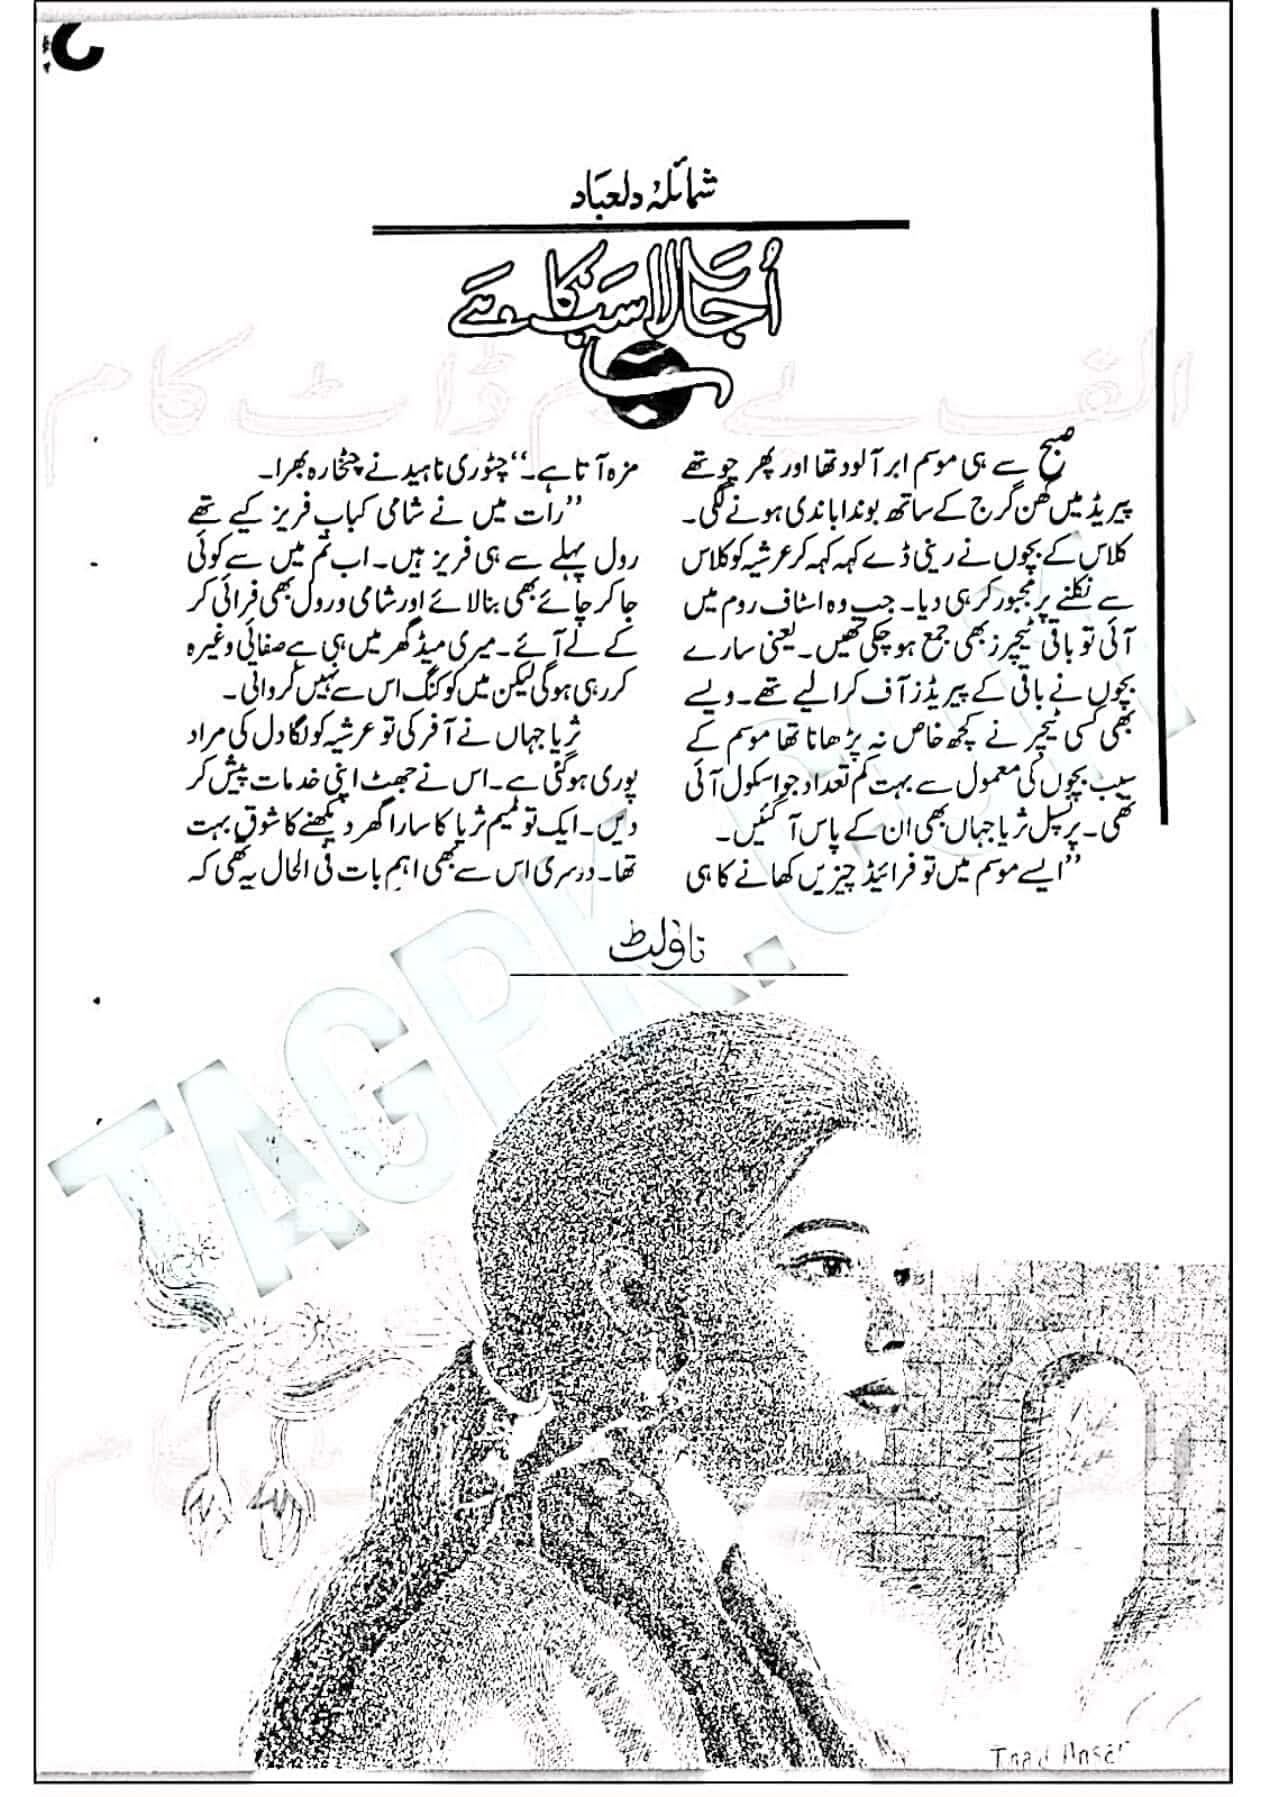 شمائلہ دلعباد
اُجالا سب کا ہے
صبح سے ہی موسم ابر آلود تھا اور پھر چوتھے
پیریڈ میں گھن گرج کے ساتھ بوندا باندی ہونے لگی۔
کلاس کے بچوں نے رینی ڈے کہہ کہہ کر عرشیہ کو کلاس
سے نکلنے پر مجبور کر ہی دیا۔ جب وہ اسٹاف روم میں
آئی تو باقی ٹیچرز بھی جمع ہو چکی تھیں۔ یعنی سارے
بچوں نے باقی کے پیریڈز آف کرا لیے تھے۔ ویسے
بھی کسی ٹیچر نے کچھ خاص نہ پڑھانا تھا موسم کے
سبب بچوں کی معمول سے بہت کم تعداد جو اسکول آئی
تھی۔ پرنسپل ثریا جہاں بھی ان کے پاس آ گئیں۔
”ایسے موسم میں تو فرائیڈ چیزیں کھانے کا ہی
مزہ آتا ہے۔“ چٹوری ناہید نے چٹخارہ بھرا۔
”رات میں نے شامی کباب فریز کیے تھے
رول پہلے سے ہی فریز ہیں۔ اب تم میں سے کوئی
جا کر چائے بھی بنا لائے اور شامی و رول بھی فرائی کر
کے لے آئے۔ میری میڈ گھر میں ہی ہے صفائی وغیرہ
کر رہی ہو گی لیکن میں کوکنگ اس سے نہیں کرواتی۔
ثریا جہاں نے آفر کی تو عرشیہ کو لگا دل کی مراد
پوری ہو گئی ہے۔ اس نے جھٹ اپنی خدمات پیش کر
دیں۔ ایک تو میم ثریا کا سارا گھر دیکھنے کا شوق بہت
تھا۔ دوسری اس سے بھی اہم بات فی الحال یہ تھی کہ
ناولٹ
TAGPK.COM